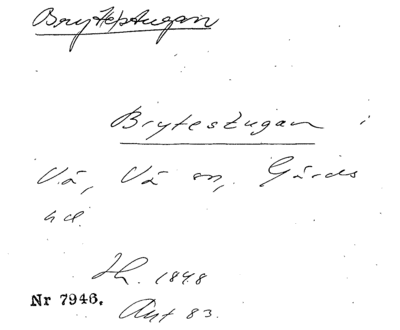 Brytestugan
Brytestugan i
Vä, Vä sn, Gärds
hd.
Th. 1848
Nr 7946.
Ant 83.